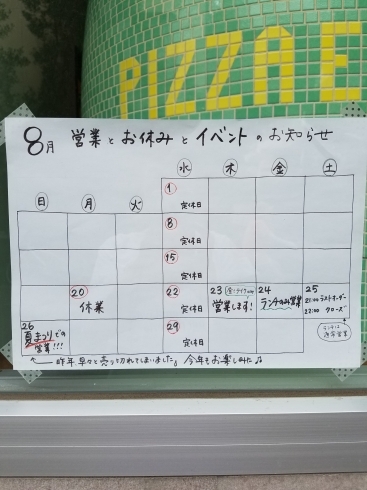 PIZZA E
8月 営業とお休みとイベントのお知らせ
日 月 火 水 木 金 土
1 定休日
8 定休日
15 定休日
20 休業
22 定休日
23 営業します!
24 ランチのみ営業
25 21:00 ラストオーダー
22:00 クローズ
ランチは通常営業
26 夏まつりでの営業!!!
29 定休日
昨年早々と売り切れてしまいました。今年もお楽しみに♪